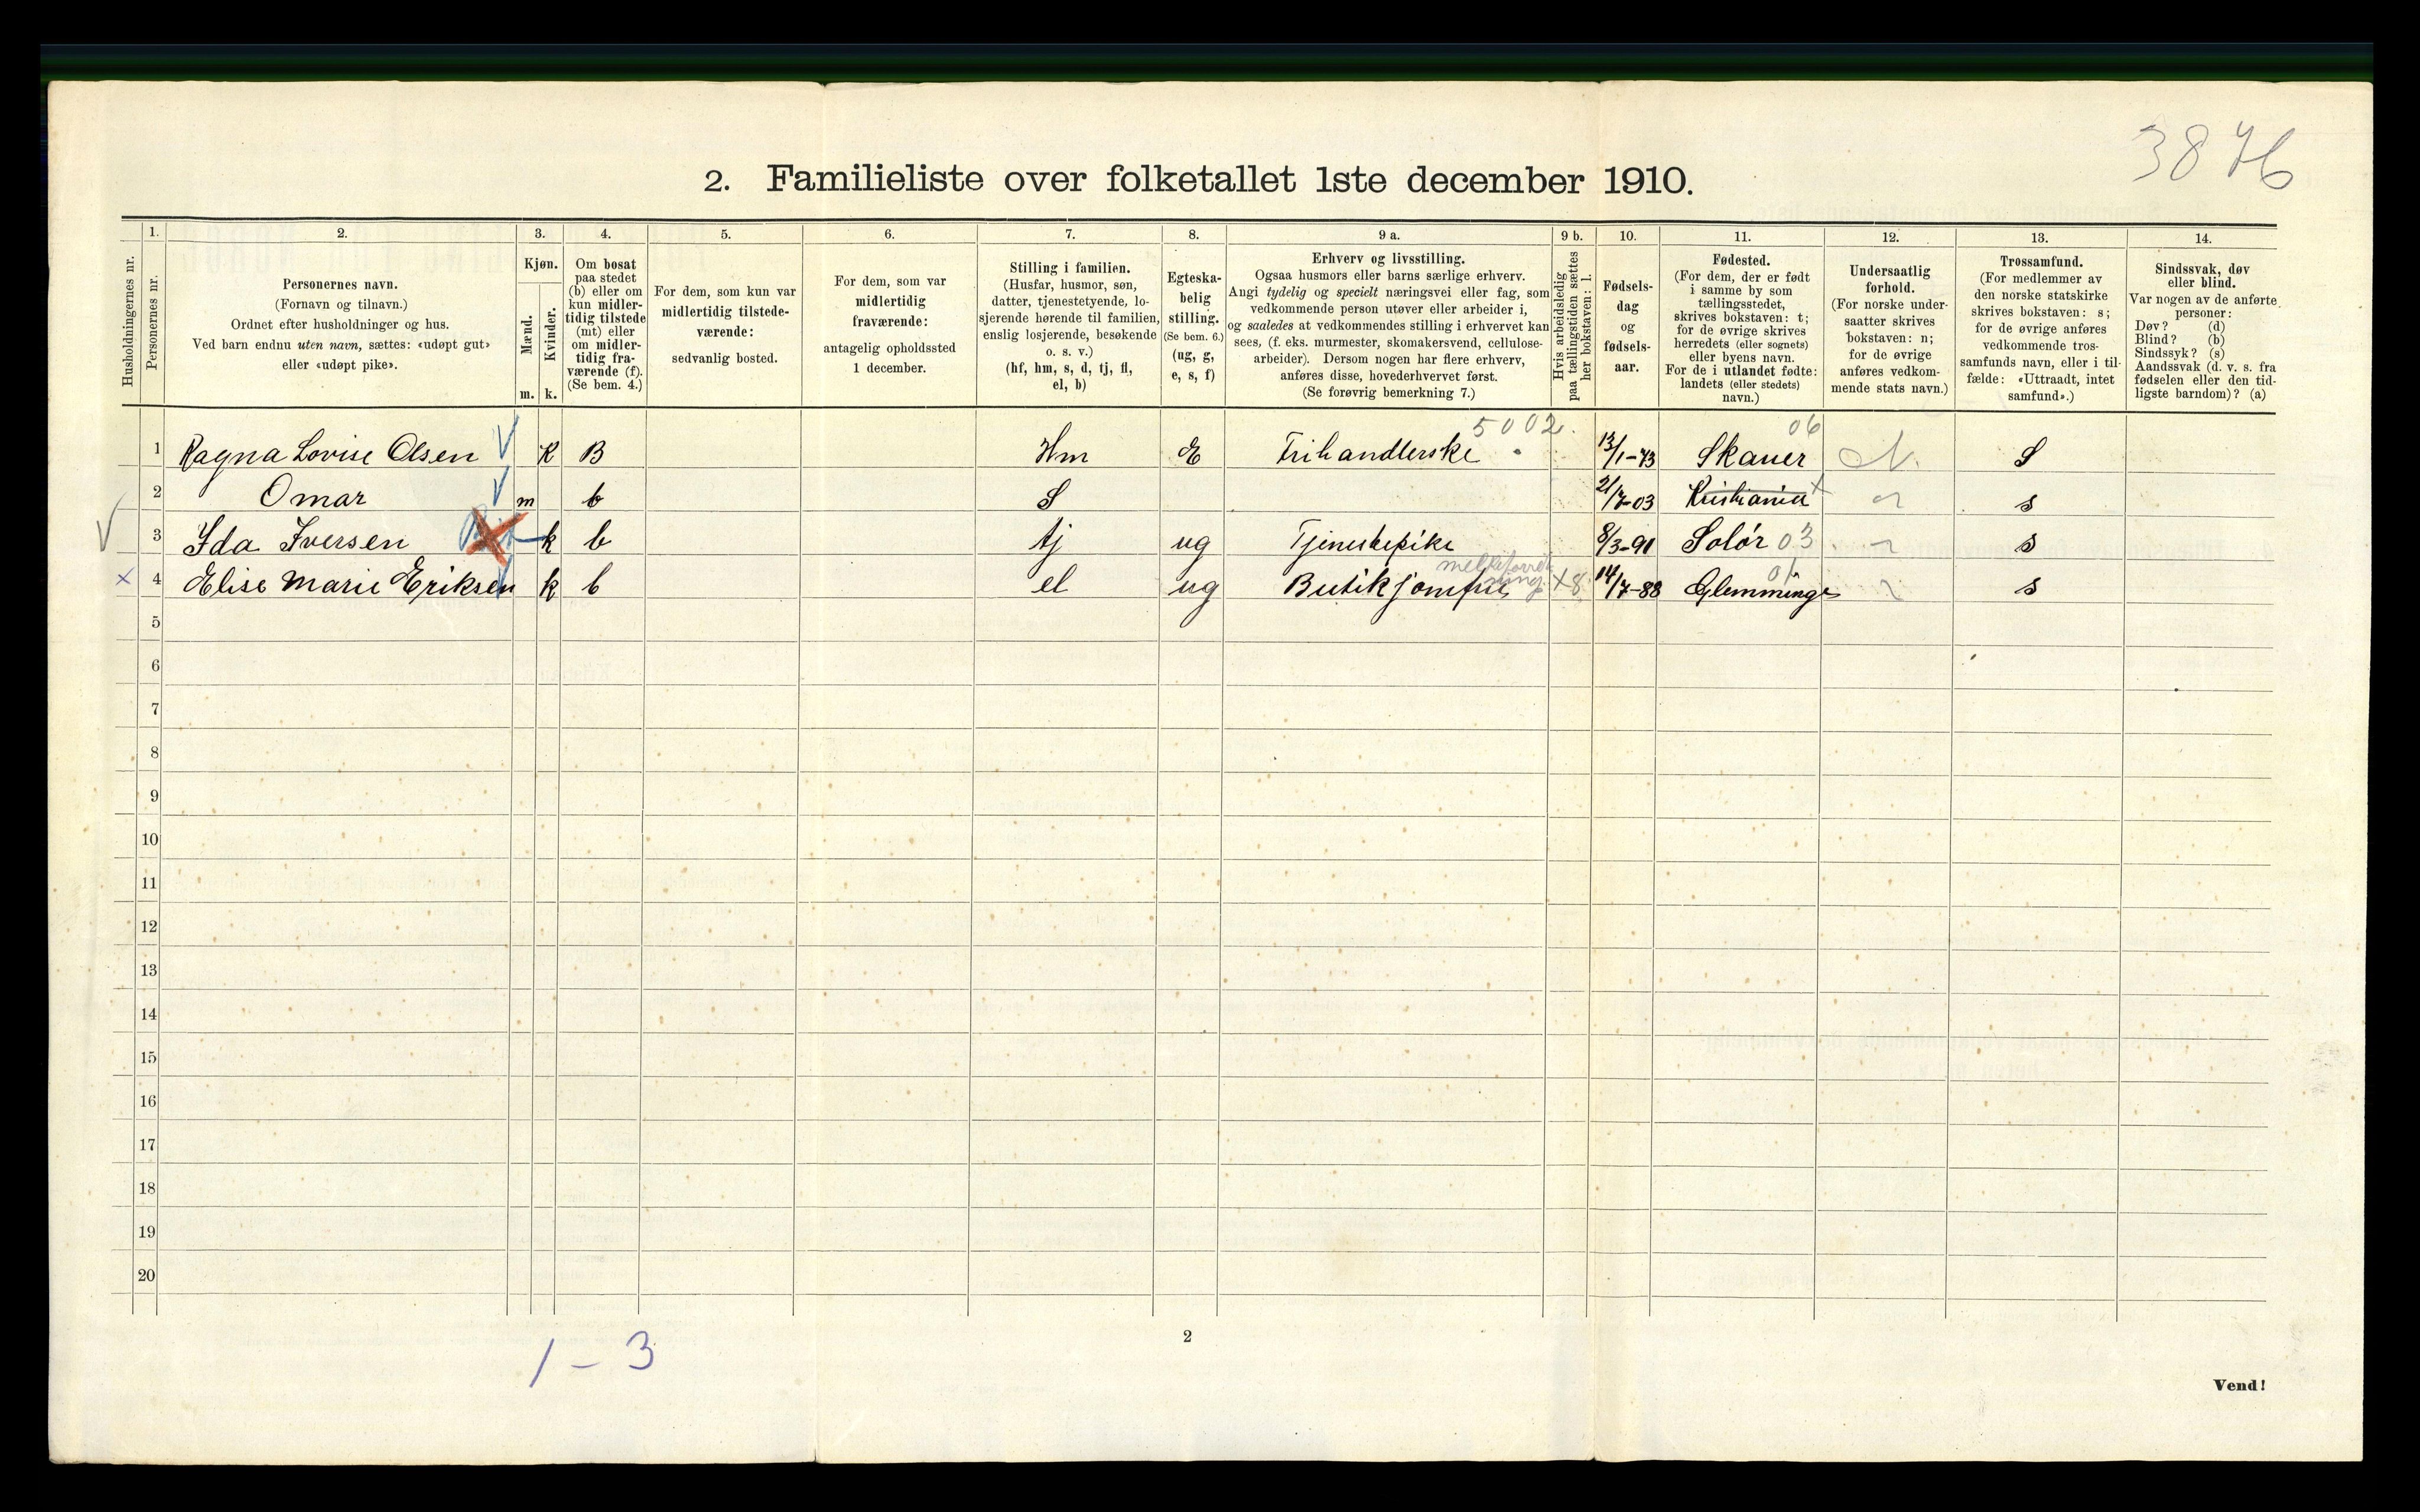 3876
2. Familieliste over folketallet 1ste december 1910.
Husholdningernes nr.
1.
Personernes nr.
2.
Personernes navn.
(Fornavn og tilnavn.)
Ordnet efter husholdninger og hus.
Ved barn endnu uten navn, sættes: «udøpt gut»
eller «udøpt pike».
3.
Kjøn.
Mænd.
Kvinder.
m. k.
4.
Om bosat
paa stedet
(b) eller om
kun midler-
tidig tilstede
(mt) eller
om midler-
tidig fra-
værende (f).
(Se bem. 4.)
5.
For dem, som kun var
midlertidig tilstede-
værende:
sedvanlig bosted.
6.
For dem, som var
midlertidig
fraværende:
antagelig opholdssted
1 december.
7.
Stilling i familien.
(Husfar, husmor, søn,
datter, tjenestetyende, lo-
sjerende hørende til familien,
enslig losjerende, besøkende
o. s. v.)
(hf, hm, s, d, tj, fl,
el, b)
8.
Egteska-
belig
stilling.
(Se bem. 6.)
(ug, g,
e, s, f)
9 a.
Erhverv og livsstilling.
Ogsaa husmors eller barns særlige erhverv.
Angi tydelig og specielt næringsvei eller fag, som
vedkommende person utøver eller arbeider i,
og saaledes at vedkommendes stilling i erhvervet kan
sees, (f. eks. murmester, skomakersvend, cellulose-
arbeider). Dersom nogen har flere erhverv,
anføres disse, hovederhvervet først.
(Se forøvrig bemerkning 7.)
9 b.
Hvis arbeidsledig
paa tællingstiden sættes
her bokstaven: l.
10.
Fødsels-
dag
og
fødsels-
aar.
11.
Fødested.
(For dem, der er født
i samme by som
tællingsstedet,
skrives bokstaven: t;
for de øvrige skrives
herredets (eller sognets)
eller byens navn.
For de i utlandet fødte:
landets (eller stedets)
navn.)
12.
Undersaatlig
forhold.
(For norske under-
saatter skrives
bokstaven: n;
for de øvrige
anføres vedkom-
mende stats navn.)
13.
Trossamfund.
(For medlemmer av
den norske statskirke
skrives bokstaven: s;
for de øvrige anføres
vedkommende tros-
samfunds navn, eller i til-
fælde: «Uttraadt, intet
samfund».)
14.
Sindssvak, døv
eller blind.
Var nogen av de anførte
personer:
Døv? (d)
Blind? (b)
Sindssyk? (s)
Aandssvak (d. v. s. fra
fødselen eller den tid-
ligste barndom)? (a)
5002. 06
1 Ragna Lovise Olsen K B Hm E Frihandlerske 13/1-73 Skauer N. S
2 Omar m b S 21/7-03 Kristiania n s
3 Ida Iversen k b tj ug Tjenestepike 8/3-91 Solør 03 n s
01
x 4 Elise Marie Eriksen k b el ug Butikjomfru x8 14/7-88 Glemminge n s
5
6
7
8
9
10
11
12
13
14
15
16
17
18
19
20
1 - 3
2
Vend!